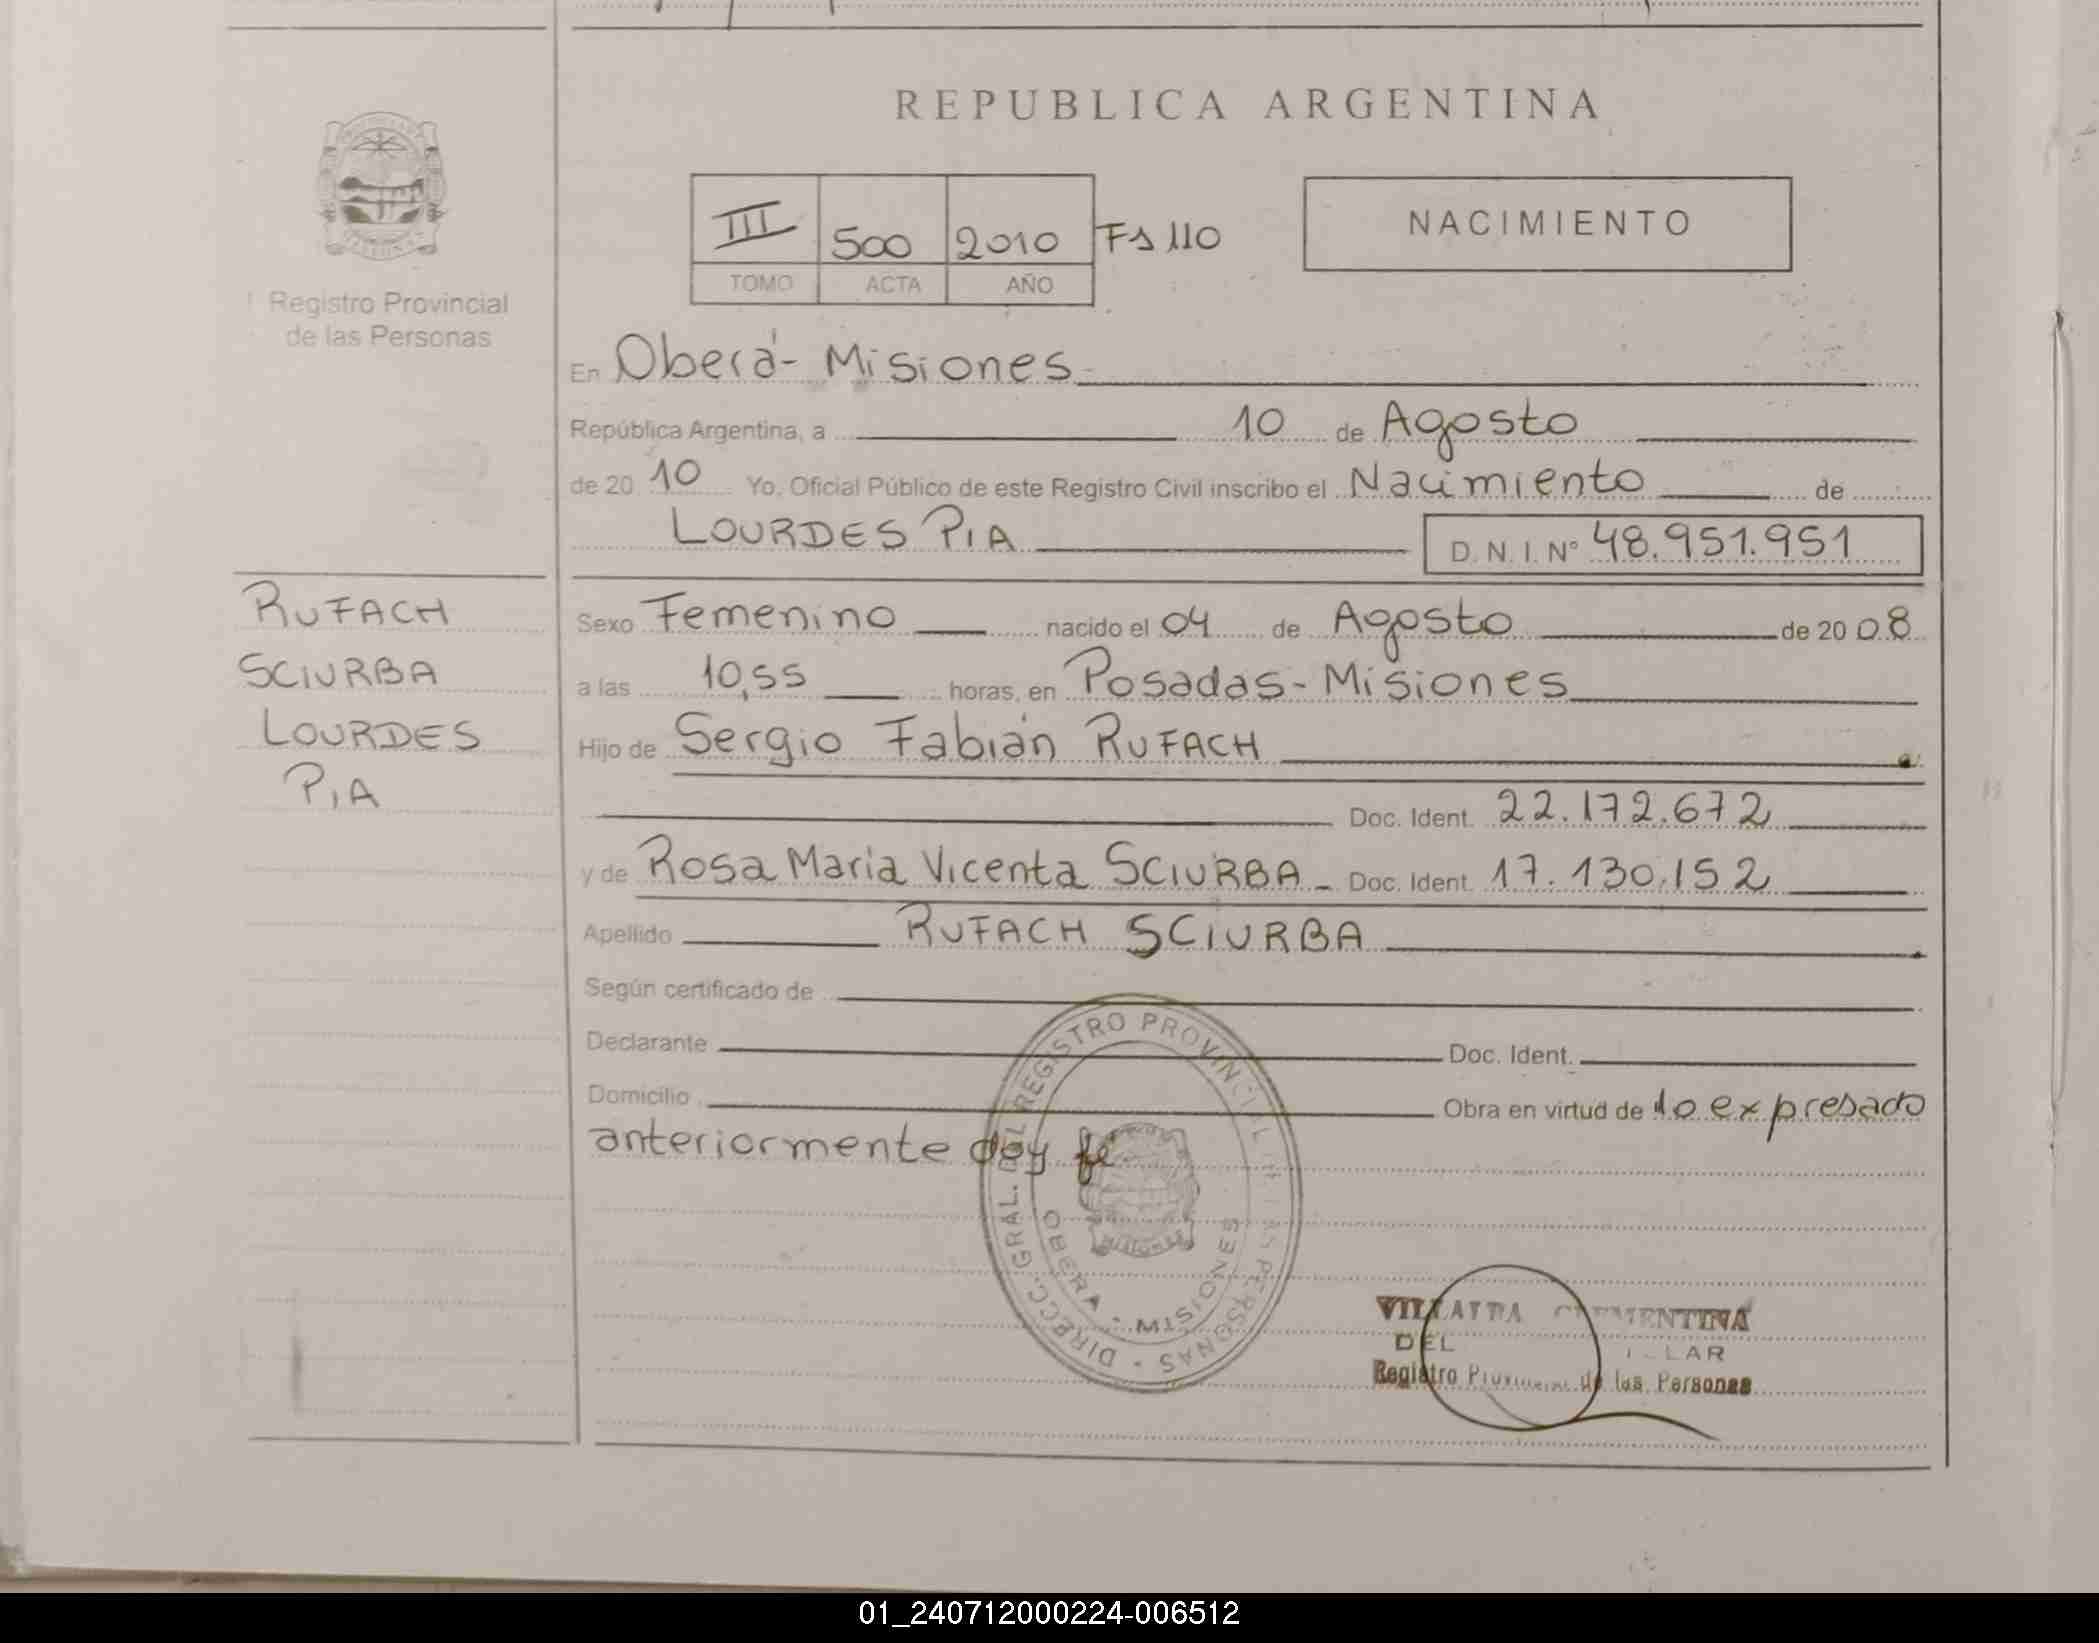 REPUBLICA ARGENTINA
III 500 2010 Fs 110
TOMO ACTA AÑO
NACIMIENTO
Registro Provincial
de las Personas
En Oberá- Misiones
República Argentina, a 10 de Agosto
de 20 10 Yo, Oficial Público de este Registro Civil inscribo el Nacimiento de
LOURDES PIA D.N.I. N° 48.951.951
RUFACH
SCIURBA
LOURDES
PIA
Sexo Femenino nacido el 04 de Agosto de 20 08
a las 10,55 horas, en Posadas - Misiones
Hijo de Sergio Fabián RUFACH
Doc. Ident. 22.172.672
y de Rosa Maria Vicenta SCIURBA - Doc. Ident. 17.130.152
Apellido RUFACH SCIURBA
Según certificado de
Declarante Doc. Ident.
Domicilio Obra en virtud de lo expresado
anteriormente doy fé
DIRECC. GRAL. DEL REGISTRO PROVINCIAL DE LAS PERSONAS
OBERA - MISIONES
MISIONES
CLEMENTINA
DEL
Registro Provincial de las Personas
01_240712000224-006512